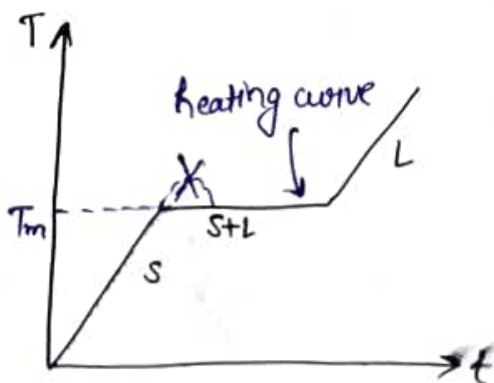 T
heating curve
X
L
Tm
S+L
S
t